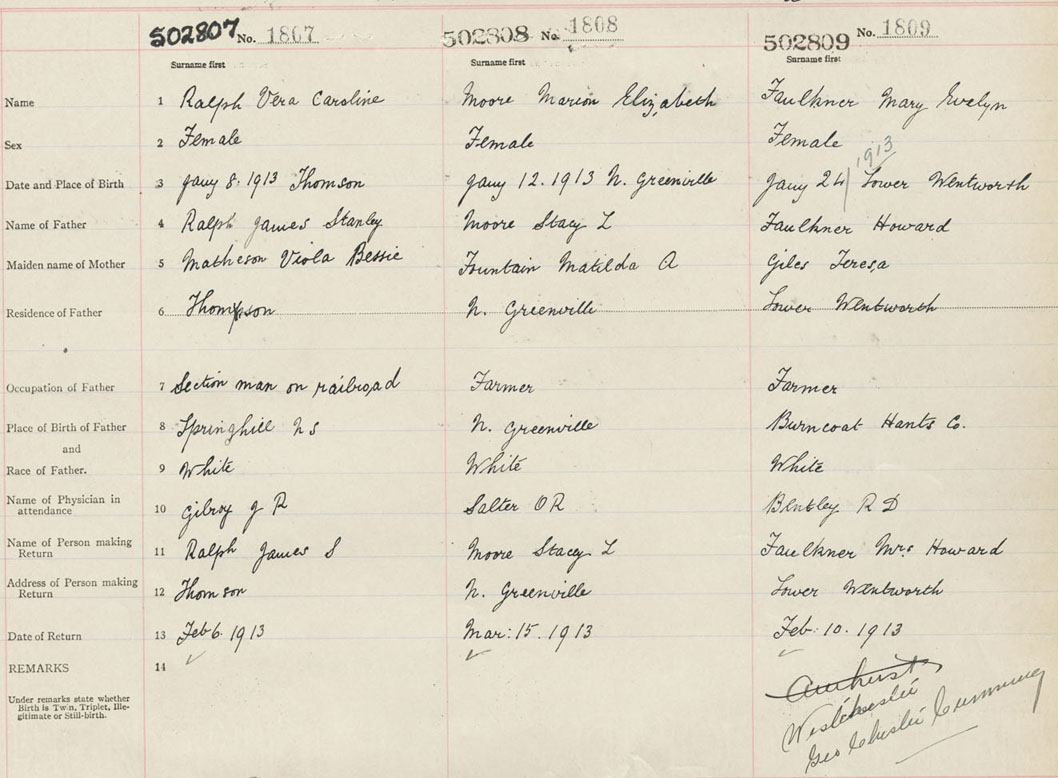 502807 No. 1807 502808 No. 1808 502809 No. 1809
Surname first Surname first Surname first
Name 1 Ralph Vera Caroline Moore Marion Elizabeth Faulkner Mary Evelyn
Sex 2 Female Female Female
1913
Date and Place of Birth 3 Jany 8. 1913 Thomson Jany 12. 1913 N. Greenville Jany 24 Lower Wentworth
Name of Father 4 Ralph James Stanley Moore Stacy L Faulkner Howard
Maiden name of Mother 5 Matheson Viola Bessie Fountain Matilda A Giles Teresa
Residence of Father 6 Thompson N. Greenville Lower Wentworth
Occupation of Father 7 Section man on railroad Farmer Farmer
Place of Birth of Father 8 Springhill N S N. Greenville Burncoat Hants Co.
and
Race of Father. 9 White White White
Name of Physician in attendance 10 Gilroy J R Salter O R Bentley R D
Name of Person making Return 11 Ralph James S Moore Stacey L Faulkner Mrs Howard
Address of Person making Return 12 Thomson N. Greenville Lower Wentworth
Date of Return 13 Feb 6. 1913 Mar: 15. 1913 Feb. 10. 1913
REMARKS 14
Under remarks state whether
Birth is Twin, Triplet, Ille-
gitimate or Still-birth.
Amherst
Geo Cumming